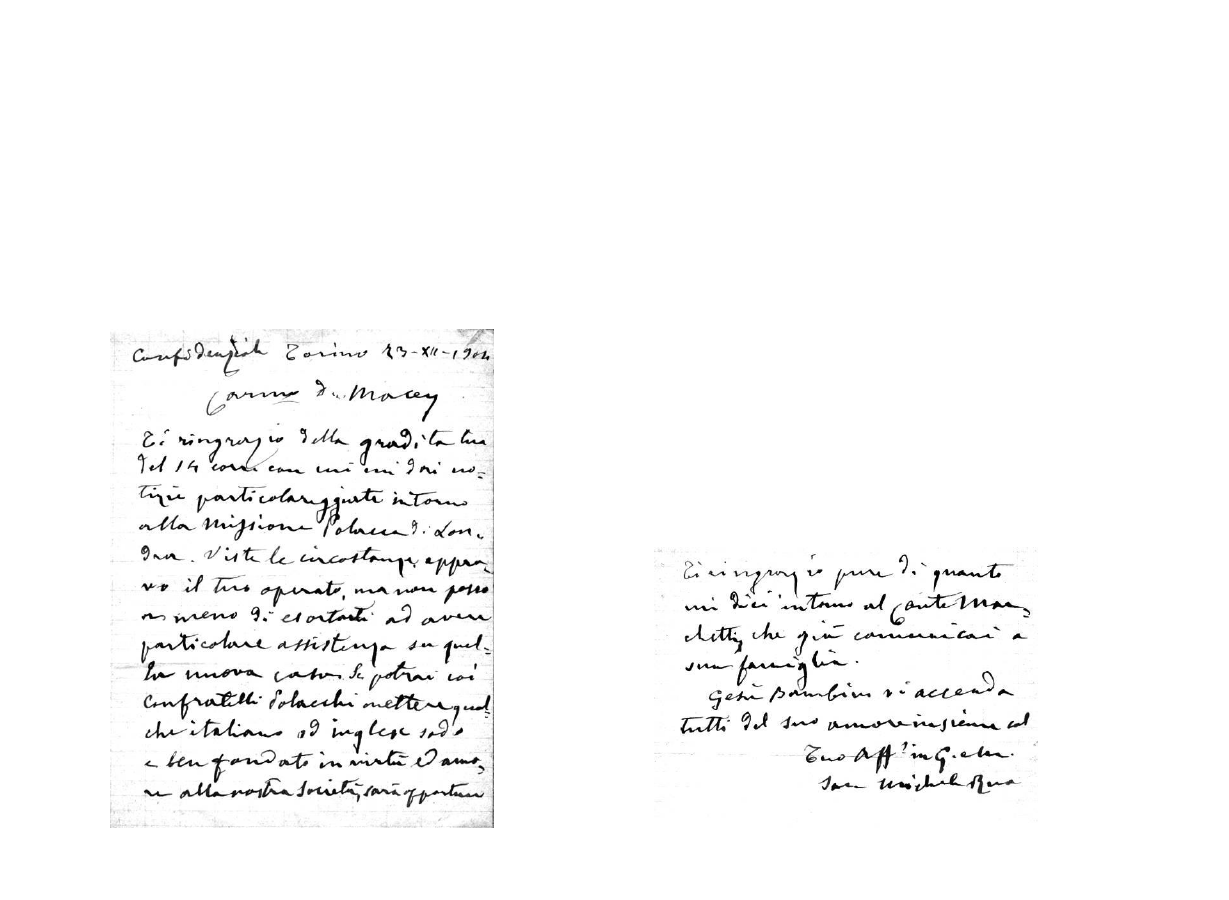 Confidenziale Torino 23-XII-1904
Carmo D. Macey
Ti ringrazio della gradita tua
del 14 corr. con cui mi dai no=
tizie particolareggiate intorno
alla Missione Polacca di Lon-
dra. Viste le circostanze, appro-
vo il tuo operato, ma non posso
a meno di esortarti ad avere
particolare assistenza su quel=
la nuova casa. Se potrai coi
Confratelli Polacchi mettere qual=
che italiano od inglese sodo
e ben fondato in virtù ed amo-
re alla nostra Società, sarà opportuno
Ti ringrazio pure di quanto
mi dici intorno al Conte Mar-
chetti, che già comunicai a
sua famiglia.
Gesù Bambino vi accenda
tutti del suo amore insieme col
Tuo Aff. in G. e M.
Sac. Michele Rua